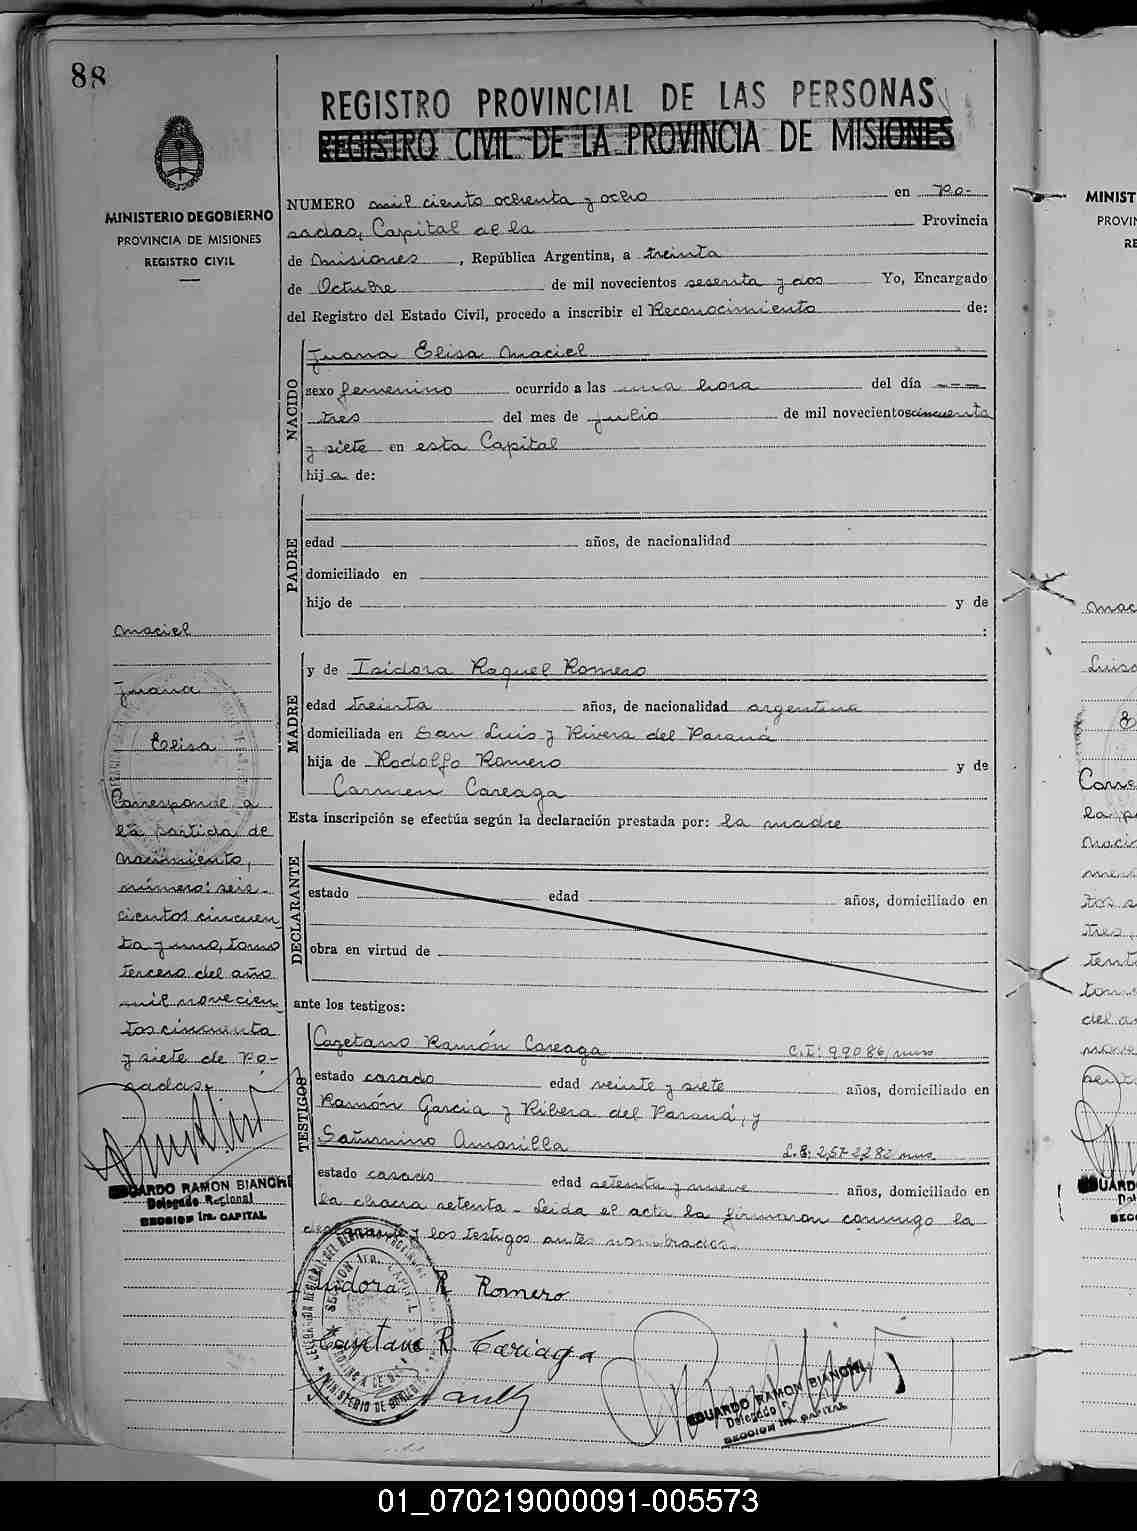 88
REGISTRO PROVINCIAL DE LAS PERSONAS
REGISTRO CIVIL DE LA PROVINCIA DE MISIONES
MINISTERIO DE GOBIERNO
PROVINCIA DE MISIONES
REGISTRO CIVIL
NUMERO mil ciento ochenta y ocho en Po-
sadas, Capital de la Provincia
de Misiones, República Argentina, a treinta
de Octubre de mil novecientos sesenta y dos Yo, Encargado
del Registro del Estado Civil, procedo a inscribir el Reconocimiento de:
NACIDO
Juana Elisa Maciel
sexo femenino ocurrido a las una hora del día ---
tres del mes de julio de mil novecientos cincuenta
y siete en esta Capital
hija de:
PADRE
edad años, de nacionalidad
domiciliado en
hijo de y de
:
MADRE
y de Isidora Raquel Romero
edad treinta años, de nacionalidad argentina
domiciliada en San Luis y Rivera del Paraná
hija de Rodolfo Romero y de
Carmen Careaga
Esta inscripción se efectúa según la declaración prestada por: la madre
DECLARANTE
estado edad años, domiciliado en
obra en virtud de
ante los testigos:
TESTIGOS
Cayetano Ramón Careaga C.I: 99086/mnes
estado casado edad veinte y siete años, domiciliado en
Ramón Garcia y Ribera del Paraná, y
Saturnino Amarilla
estado casado edad setenta y nueve años, domiciliado en
la chacra setenta - Leida el acta la firmaron conmigo la
declarante y los testigos antes nombrados.
Isidora R Romero
Cayetano R. Cariaga
EDUARDO RAMON BIANCHI
Delegado R.
SECCION 1ra. CAPITAL
Maciel
Juana
Elisa
Corresponde a
la partida de
nacimiento,
número: seis-
cientos cincuen
ta y uno, tomo
tercero del año
mil novecien
tos cincuenta
y siete de Po-
sadas.
EDUARDO RAMON BIANCHI
Delegado Regional
SECCION 1ra. CAPITAL
MINIST
PROVIN
RE
Maci
Luisa
E
Corre
la pa
01_070219000091-005573